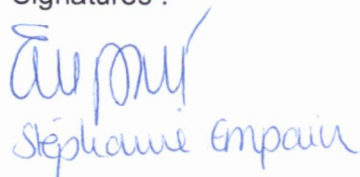 Signatures :
Stéphanie Empain